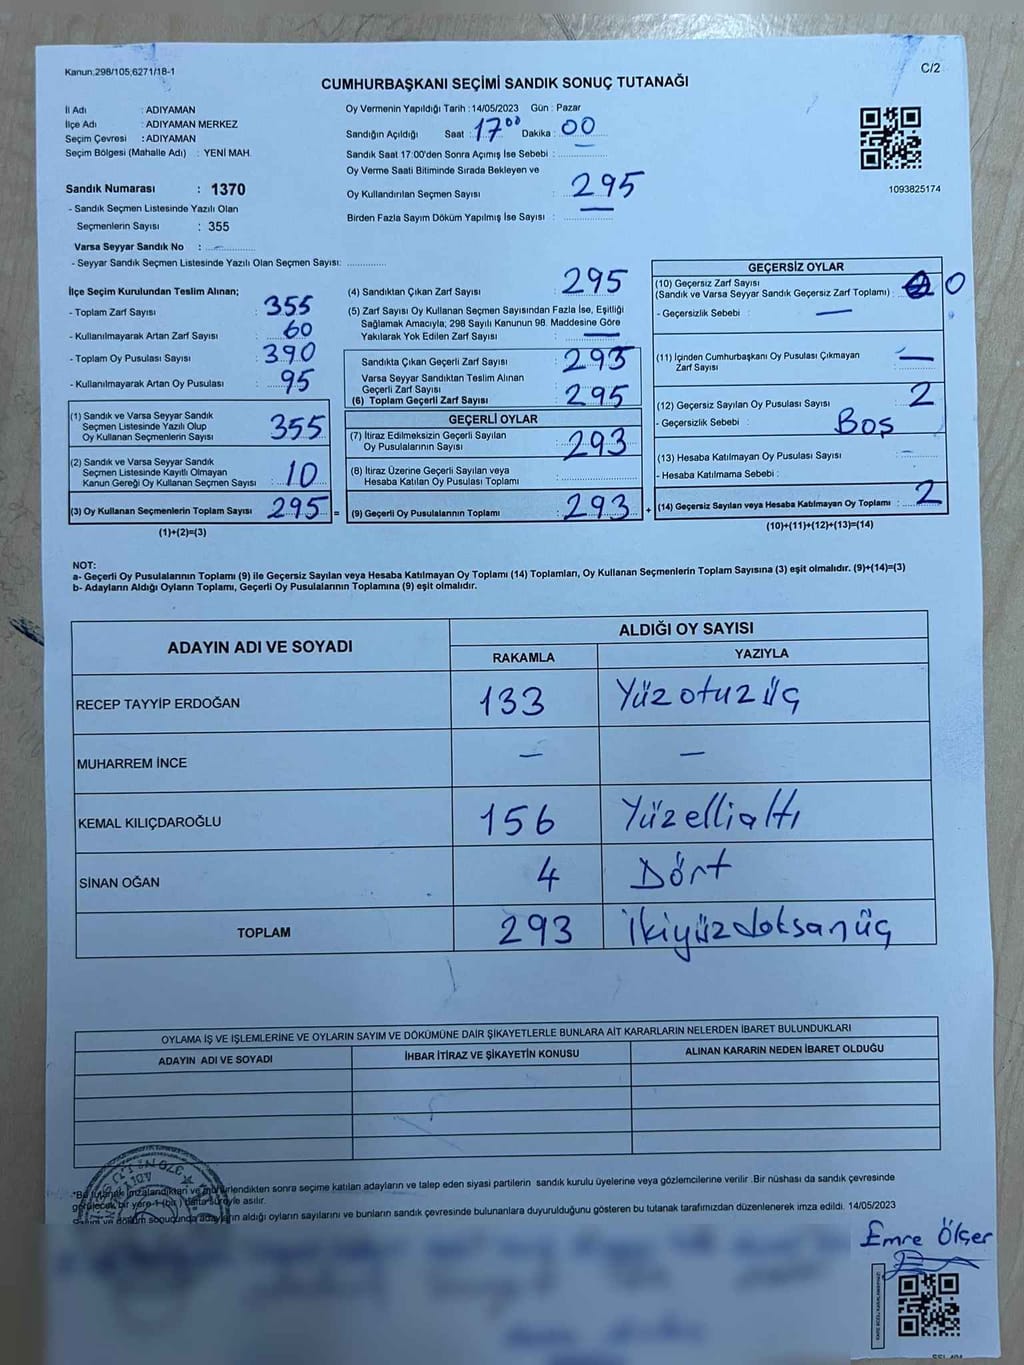 Kanun:298/105;6271/18-1
C/2
CUMHURBAŞKANI SEÇİMİ SANDIK SONUÇ TUTANAĞI
İl Adı : ADIYAMAN
İlçe Adı : ADIYAMAN MERKEZ
Seçim Çevresi : ADIYAMAN
Seçim Bölgesi (Mahalle Adı) : YENİ MAH.
Sandık Numarası : 1370
- Sandık Seçmen Listesinde Yazılı Olan
Seçmenlerin Sayısı : 355
Varsa Seyyar Sandık No : -
- Seyyar Sandık Seçmen Listesinde Yazılı Olan Seçmen Sayısı:
Oy Vermenin Yapıldığı Tarih :14/05/2023 Gün : Pazar
Sandığın Açıldığı Saat : 17 00 Dakika : 00
Sandık Saat 17:00'den Sonra Açımış İse Sebebi :
Oy Verme Saati Bitiminde Sırada Bekleyen ve
Oy Kullandırılan Seçmen Sayısı : 295
Birden Fazla Sayım Döküm Yapılmış İse Sayısı :
1093825174
İlçe Seçim Kurulundan Teslim Alınan;
- Toplam Zarf Sayısı : 355
- Kullanılmayarak Artan Zarf Sayısı : 60
- Toplam Oy Pusulası Sayısı : 390
- Kullanılmayarak Artan Oy Pusulası : 95
(1) Sandık ve Varsa Seyyar Sandık
Seçmen Listesinde Yazılı Olup
Oy Kullanan Seçmenlerin Sayısı : 355
(2) Sandık ve Varsa Seyyar Sandık
Seçmen Listesinde Kayıtlı Olmayan
Kanun Gereği Oy Kullanan Seçmen Sayısı : 10
(3) Oy Kullanan Seçmenlerin Toplam Sayısı : 295 =
(1)+(2)=(3)
(4) Sandıktan Çıkan Zarf Sayısı : 295
(5) Zarf Sayısı Oy Kullanan Seçmen Sayısından Fazla İse, Eşitliği
Sağlamak Amacıyla; 298 Sayılı Kanunun 98. Maddesine Göre
Yakılarak Yok Edilen Zarf Sayısı : —
Sandıkta Çıkan Geçerli Zarf Sayısı : 293
Varsa Seyyar Sandıktan Teslim Alınan
Geçerli Zarf Sayısı
(6) Toplam Geçerli Zarf Sayısı : 295
GEÇERLİ OYLAR
(7) İtiraz Edilmeksizin Geçerli Sayılan
Oy Pusulalarının Sayısı : 293
(8) İtiraz Üzerine Geçerli Sayılan veya
Hesaba Katılan Oy Pusulası Toplamı :
(9) Geçerli Oy Pusulalarının Toplamı : 293 +
GEÇERSİZ OYLAR
(10) Geçersiz Zarf Sayısı
(Sandık ve Varsa Seyyar Sandık Geçersiz Zarf Toplamı) : 0
- Geçersizlik Sebebi : —
(11) İçinden Cumhurbaşkanı Oy Pusulası Çıkmayan
Zarf Sayısı : —
(12) Geçersiz Sayılan Oy Pusulası Sayısı : 2
- Geçersizlik Sebebi : Boş
(13) Hesaba Katılmayan Oy Pusulası Sayısı : -
- Hesaba Katılmama Sebebi :
(14) Geçersiz Sayılan veya Hesaba Katılmayan Oy Toplamı : 2
(10)+(11)+(12)+(13)=(14)
NOT:
a- Geçerli Oy Pusulalarının Toplamı (9) ile Geçersiz Sayılan veya Hesaba Katılmayan Oy Toplamı (14) Toplamları, Oy Kullanan Seçmenlerin Toplam Sayısına (3) eşit olmalıdır. (9)+(14)=(3)
b- Adayların Aldığı Oyların Toplamı, Geçerli Oy Pusulalarının Toplamına (9) eşit olmalıdır.
ADAYIN ADI VE SOYADI
ALDIĞI OY SAYISI
RAKAMLA YAZIYLA
RECEP TAYYİP ERDOĞAN 133 Yüzotuzüç
MUHARREM İNCE — —
KEMAL KILIÇDAROĞLU 156 Yüzellialtı
SİNAN OĞAN 4 Dört
TOPLAM 293 İkiyüzdoksanüç
OYLAMA İŞ VE İŞLEMLERİNE VE OYLARIN SAYIM VE DÖKÜMÜNE DAİR ŞİKAYETLERLE BUNLARA AİT KARARLARIN NELERDEN İBARET BULUNDUKLARI
ADAYIN ADI VE SOYADI İHBAR İTİRAZ VE ŞİKAYETİN KONUSU ALINAN KARARIN NEDEN İBARET OLDUĞU
*Bu tutanak imzalandıktan ve mühürlendikten sonra seçime katılan adayların ve talep eden siyasi partilerin sandık kurulu üyelerine veya gözlemcilerine verilir .Bir nüshası da sandık çevresinde
görülecek bir yere 1 (bir) hafta süreyle asılır.
Sayım ve döküm sonucunda adayların aldığı oyların sayılarını ve bunların sandık çevresinde bulunanlara duyurulduğunu gösteren bu tutanak tarafımızdan düzenlenerek imza edildi. 14/05/2023
Emre Ölçer